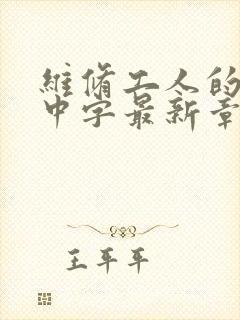 維脩工人的
中字最新章
王平平